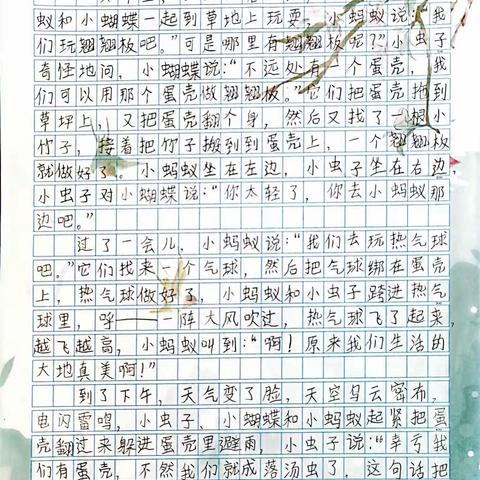 蚁和小蝴蝶一起到草地上玩耍,小蚂蚁说:“我
们玩翘翘板吧。”可是哪里有翘翘板呢?”小虫子
奇怪地问,小蝴蝶说:“不远处有一个蛋壳,我
们可以用那个蛋壳做翘翘板。”它们把蛋壳拖到
草坪上,又把蛋壳翻个身,然后又找了一根小
竹子,接着把竹子搬到到蛋壳上,一个翘翘板
就做好了,小蚂蚁坐在左边,小虫子坐在右边,
小虫子对小蝴蝶说:“你太轻了,你去小蚂蚁那
边吧。”
过了一会儿,小蚂蚁说:“我们去玩热气球
吧。”它们找来一个气球,然后把气球绑在蛋壳
上,热气球做好了,小蚂蚁和小虫子跨进热气
球里,呼——一阵大风吹过,热气球飞了起来,
越飞越高,小蚂蚁叫到:“啊!原来我们生活的
大地真美啊!”
到了下午,天气变了脸,天空乌云密布,
电闪雷鸣,小虫子、小蝴蝶和小蚂蚁起紧把蛋
壳翻过来躲进蛋壳里避雨,小虫子说:“幸亏我
们有蛋壳,不然我们就成落汤虫了,这句话把